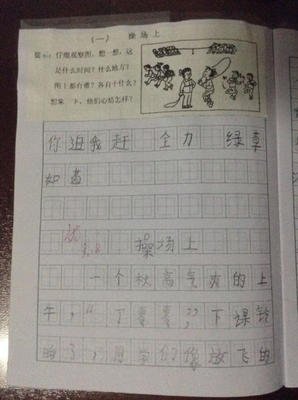 （一） 操场上
提示：仔细观察图，想一想，这
是什么时间？什么地方？
图上都有谁？各有什么？
想象一下，他们心情怎样？
你追我赶 全力 绿草
如茵
优
操场上
一个秋高气爽的上
午，“丁零零”下课铃
响了，同学们像放飞的